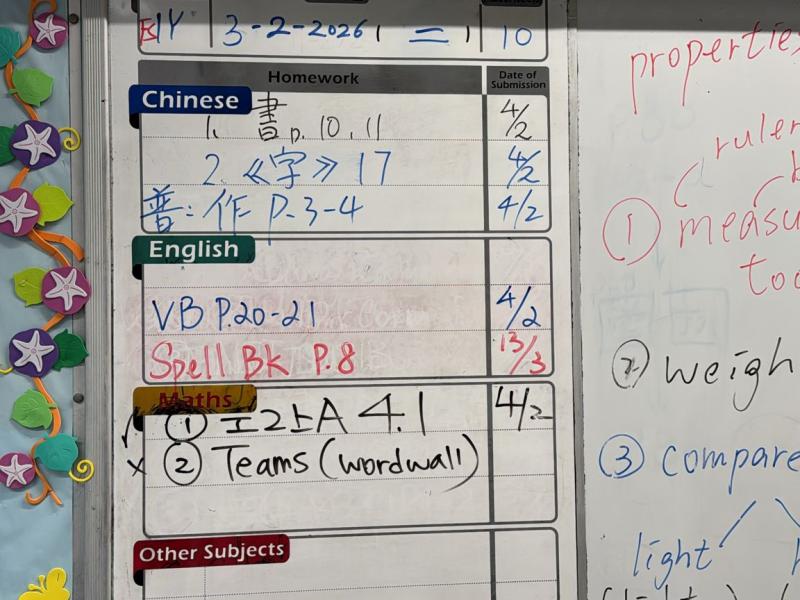 1Y 3-2-2026 二 10
Homework Date of Submission
Chinese
1. 書 p. 10, 11 4/2
2. 《字》 17 4/2
普: 作 P.3-4 4/2
English
VB P.20-21 4/2
Spell Bk P.8 13/3
Maths
① A 4.1 4/2
② Teams (wordwall)
Other Subjects
properties
ruler
① measu
too
② weigh
③ compare
light